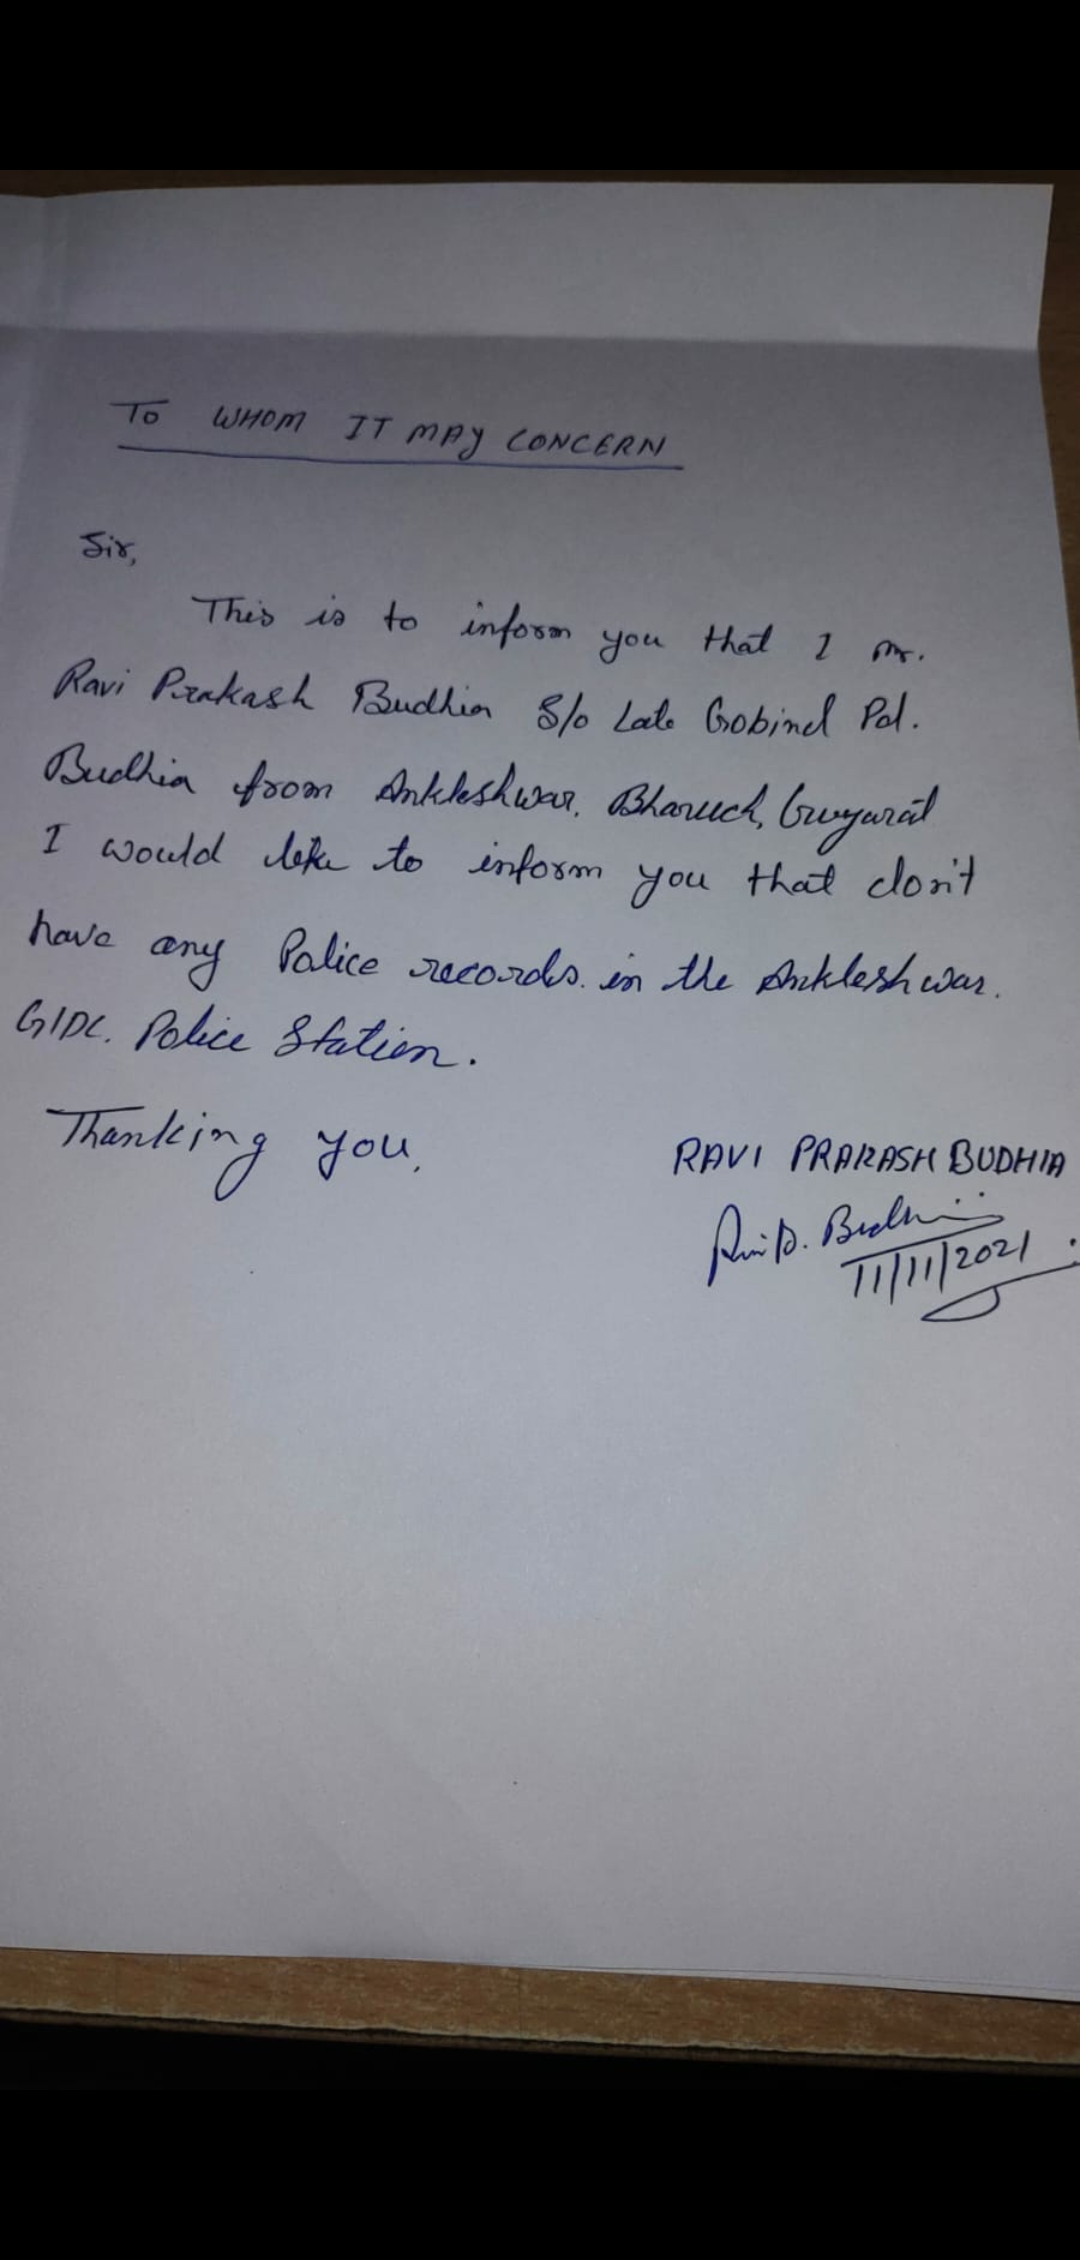 TO WHOM IT MAY CONCERN
Sir,
This is to inform you that I Mr.
Ravi Prakash Budhia S/o Late Gobind Pd.
Budhia from Ankleshwar, Bharuch, Gujarat
I would like to inform you that don't
have any Police records in the Ankleshwar.
GIDC. Police Station.
Thanking you,
RAVI PRAKASH BUDHIA
11/11/2021